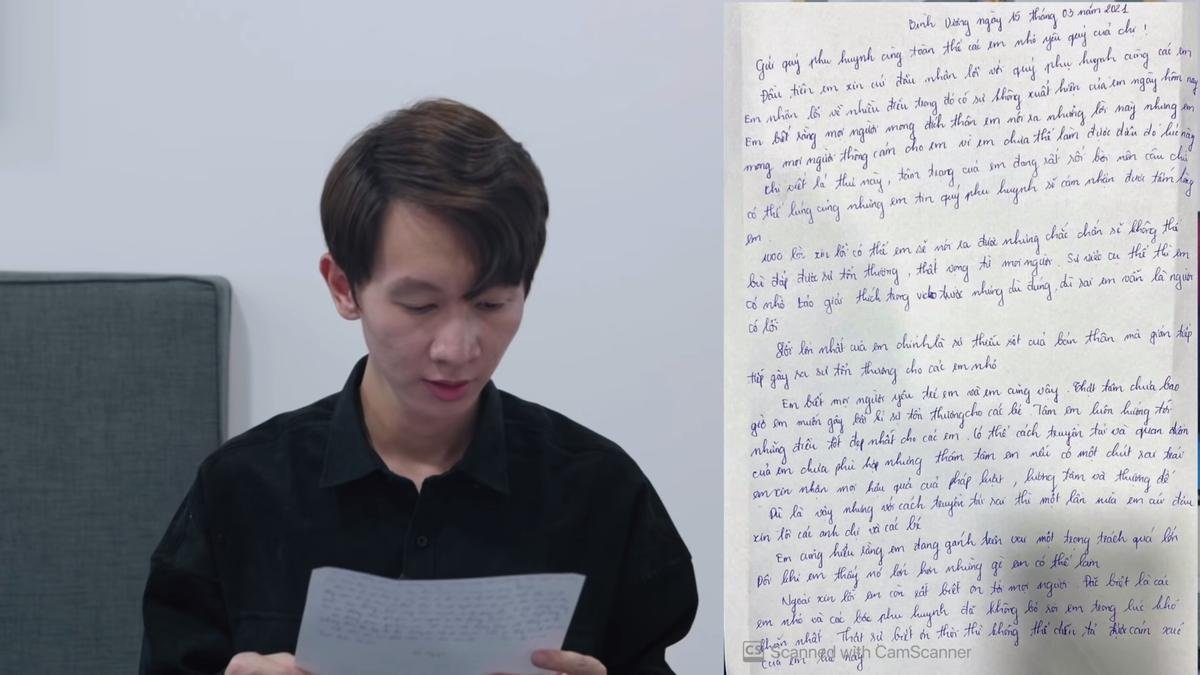 Bình Dương ngày 15 tháng 03 năm 2021
Gửi quý phụ huynh cùng toàn thể các em nhỏ yêu quý của chị !
Đầu tiên em xin cúi đầu nhận lỗi với quý phụ huynh cùng các em
Em nhận lỗi về nhiều điều trong đó có sự không xuất hiện của em ngày hôm nay
Em biết rằng mọi người mong đích thân em nói ra những lời này nhưng em
mong mọi người thông cảm cho em vì em chưa thể làm được điều đó lúc này
Khi viết lá thư này, tâm trạng của em đang rất rối bời nên câu chữ
có thể lúng củng nhưng em tin quý phụ huynh sẽ cảm nhận được tấm lòng
em
1000 lời xin lỗi có thể em sẽ nói ra được nhưng chắc chắn sẽ không thể
bù đắp được sự tổn thương, thất vọng từ mọi người. Sự việc cụ thể thì em
có nhờ bảo giải thích trong video trước nhưng dù đúng, dù sai em vẫn là người
có lỗi
Lỗi lớn nhất của em chính là sự thiếu sót của bản thân mà gián tiếp
tiếp gây ra sự tổn thương cho các em nhỏ
Em biết mọi người yêu trẻ em và em cũng vậy. Thật tâm chưa bao
giờ em muốn gây bất kì sự tổn thương cho các bé. Tâm em luôn hướng tới
những điều tốt đẹp nhất cho các em. Có thể cách truyền tải và quan điểm
của em chưa phù hợp nhưng thâm tâm em nếu có một chút sai trái
em xin nhận mọi hậu quả của pháp luật, lương tâm và thượng đế
Dù là vậy nhưng với cách truyền tải sai thì một lần nữa em cúi đầu
xin lỗi các anh chị và các bé
Em cũng hiểu rằng em đang gánh trên vai một trọng trách quá lớn
Đôi khi em thấy nó lớn hơn những gì em có thể làm
Ngoài xin lỗi em còn rất biết ơn tới mọi người. Đặc biệt là các
em nhỏ và các bác phụ huynh đã không bỏ rơi em trong lúc khó
khăn nhất. Thật sự biết ơn thôi thì không thể diễn tả được cảm xúc
của em lúc này
CS Scanned with CamScanner